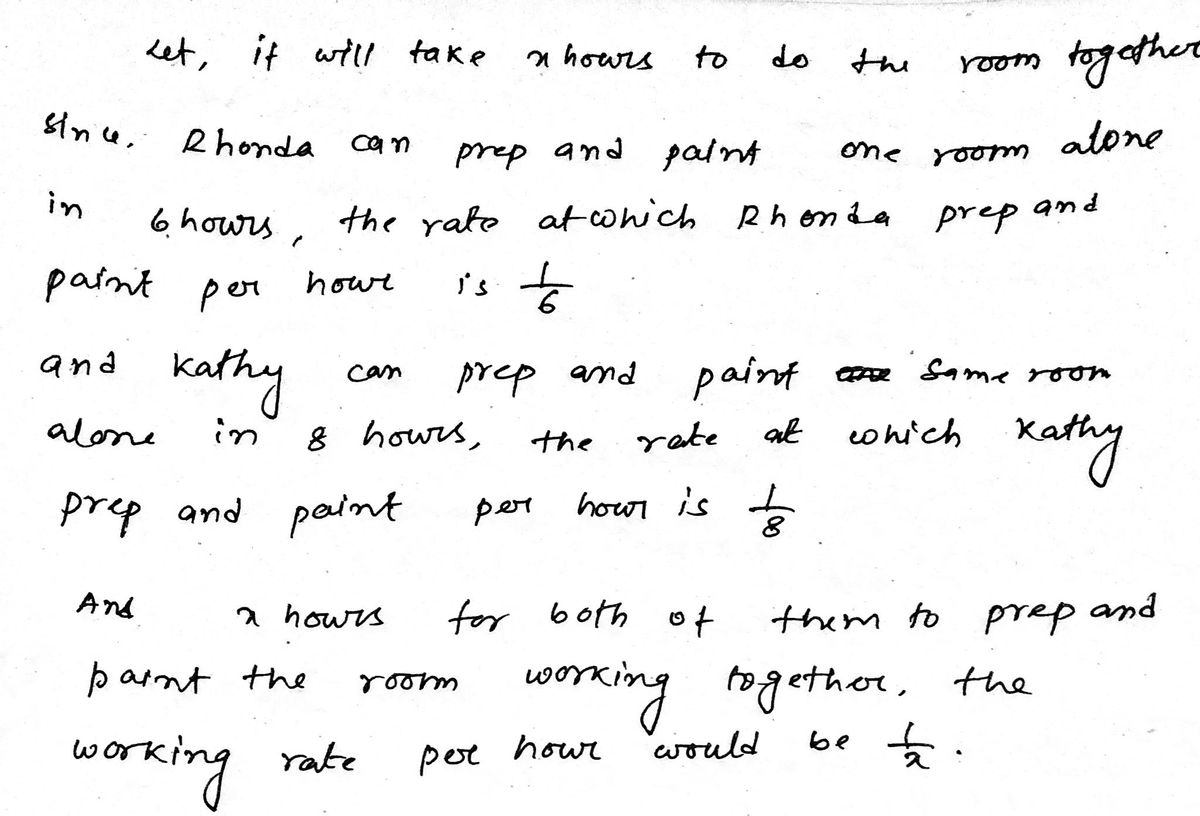 Let, it will take x hours to do the room together
Since, Rhonda can prep and paint one room alone
in 6 hours, the rate at which Rhonda prep and
paint per hour is 1/6
and Kathy can prep and paint same room
alone in 8 hours, the rate at which Kathy
prep and paint per hour is 1/8
And x hours for both of them to prep and
paint the room working together, the
working rate per hour would be 1/x.